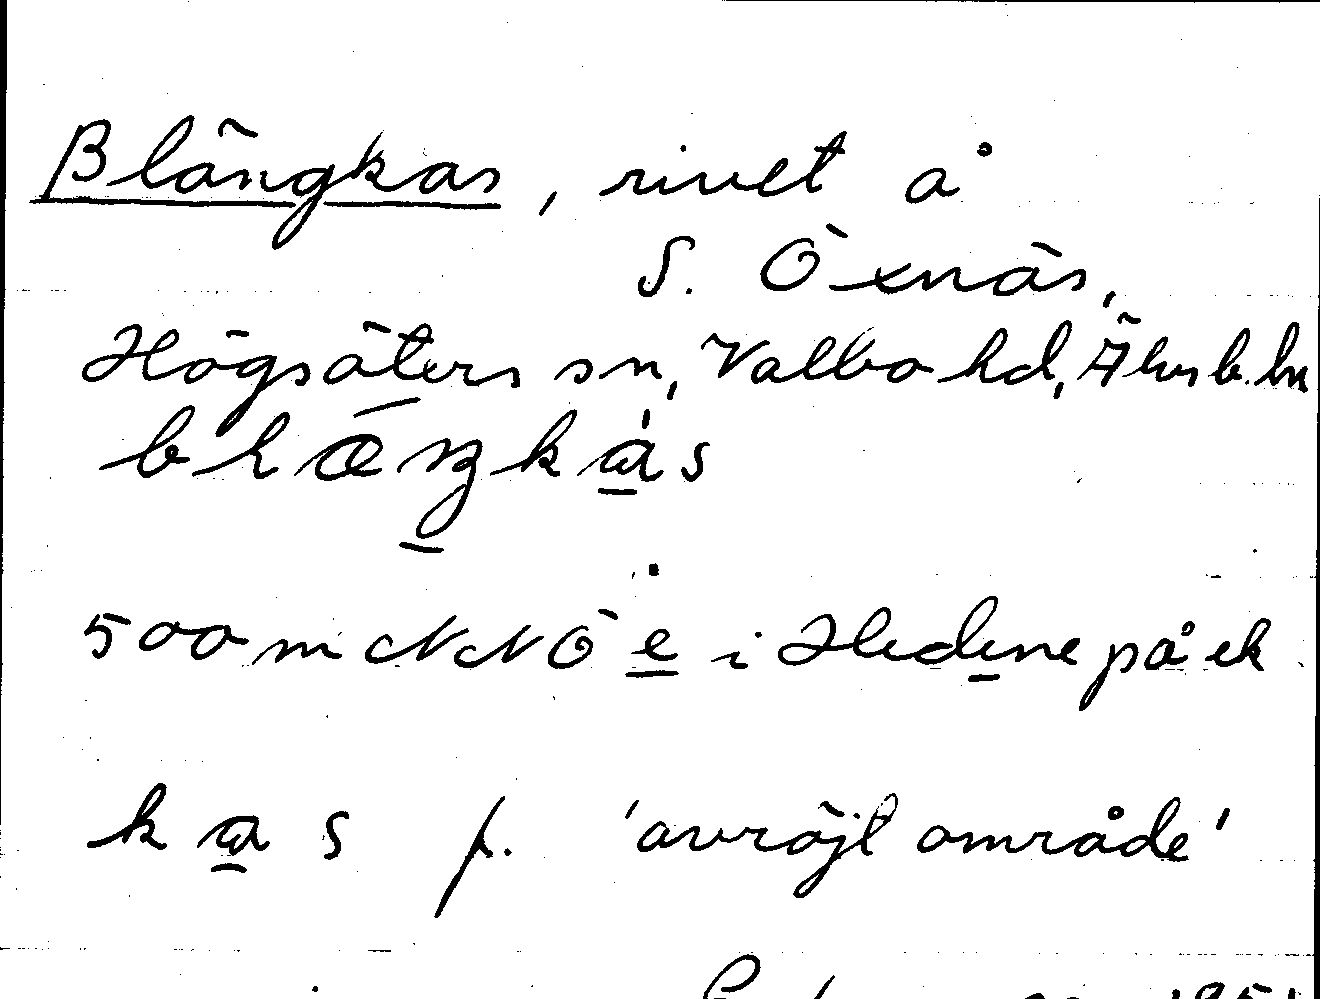 Blängkas, rivet å
S. Öxnäs,
Högsäters sn, Valbo hd, Älvsb. ln
500 m NNÖ e i Hedene på ek
kɑs f. 'avröjt område'